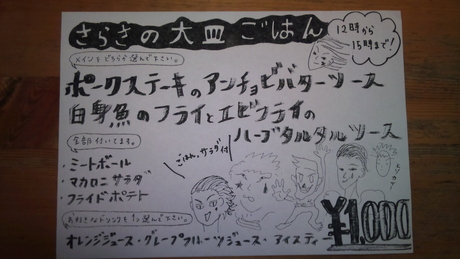 さらさの大皿ごはん
12時から
15時まで!
メインをどちらか選んで下さい。
ポークステーキのアンチョビバターソース
白身魚のフライとエビフライの
ハーブタルタルソース
全部付いてます。
・ミートボール
・マカロニサラダ
・フライドポテト
ごはん、サラダ付
お好きなドリンクを1つ選んで下さい。
オレンジジュース・グレープフルーツジュース・アイスティー
¥1,000